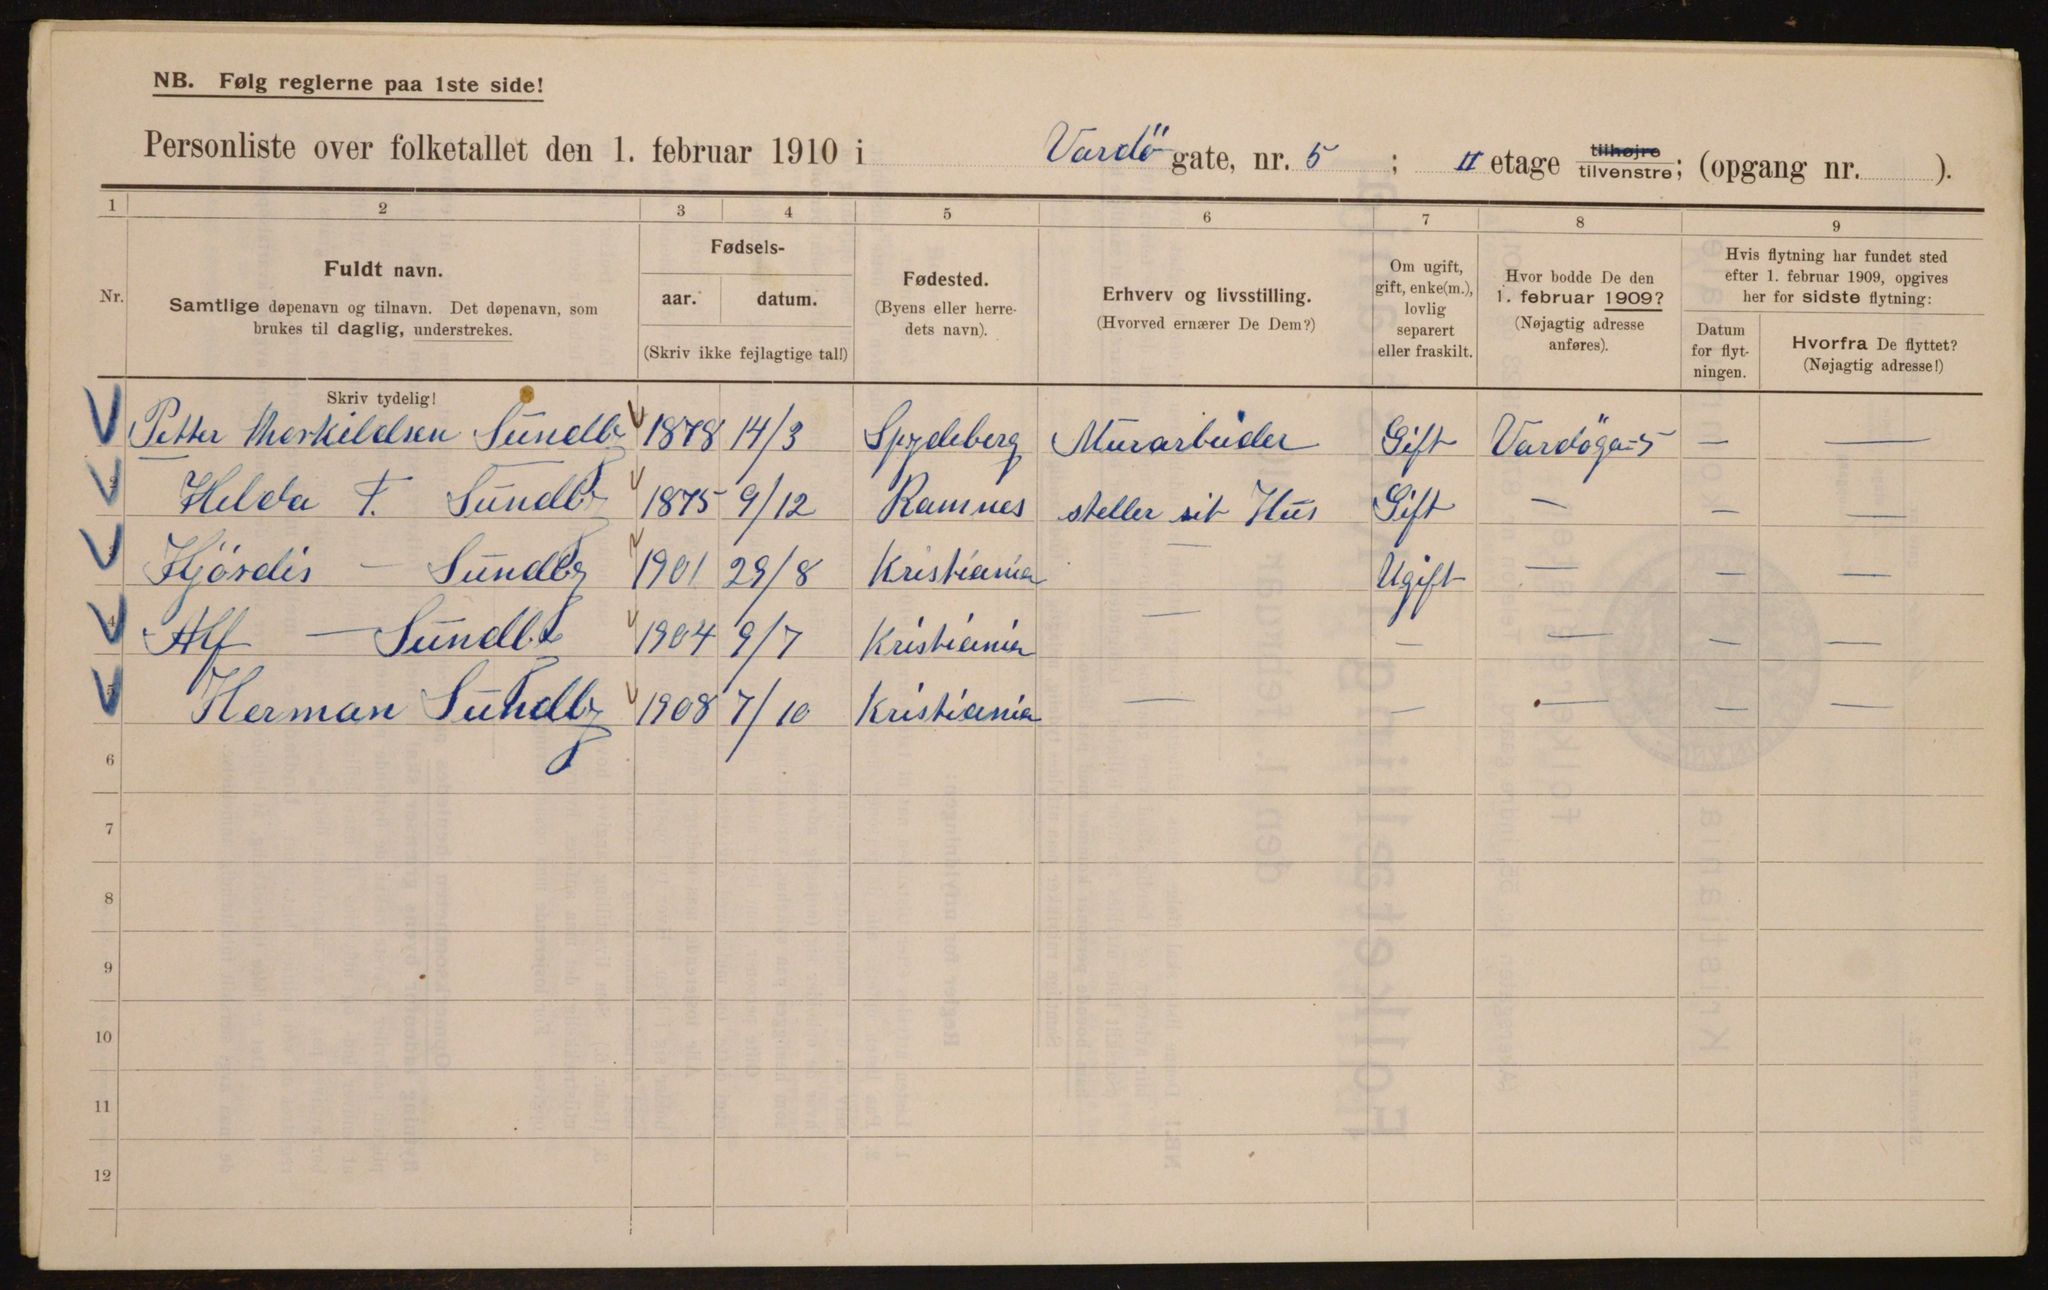 NB. Følg reglerne paa 1ste side!
Personliste over folketallet den 1. februar 1910 i Vardö gate, nr. 5 ; II etage tilhøjre tilvenstre; (opgang nr. ).
1 2 3 4 5 6 7 8 9
Nr.
Fuldt navn.
Samtlige døpenavn og tilnavn. Det døpenavn, som
brukes til daglig, understrekes.
Skriv tydelig!
Fødsels-
aar. datum.
(Skriv ikke fejlagtige tal!)
Fødested.
(Byens eller herre-
dets navn).
Erhverv og livsstilling.
(Hvorved ernærer De Dem?)
Om ugift,
gift, enke(m.),
lovlig
separert
eller fraskilt.
Hvor bodde De den
1. februar 1909?
(Nøjagtig adresse
anføres).
Hvis flytning har fundet sted
efter 1. februar 1909, opgives
her for sidste flytning:
Datum
for flyt-
ningen.
Hvorfra De flyttet?
(Nøjagtig adresse!)
Petter Thorkildsen Sundby 1878 14/3 Spydeberg Murarbeider Gift Vardöga-5 — —
2 Helda F. Sundby 1875 9/12 Ramnes steller sit Hus Gift — — —
3 Hjördis — Sundby 1901 29/8 Kristiania — Ugift — — —
4 Alf — Sundby 1904 9/7 Kristiania — — — — —
5 Herman Sundby 1908 7/10 Kristiania — — — — —
6
7
8
9
10
11
12